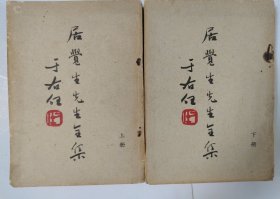 居覺生先生全集
于右任
上册
居覺生先生全集
于右任
下册